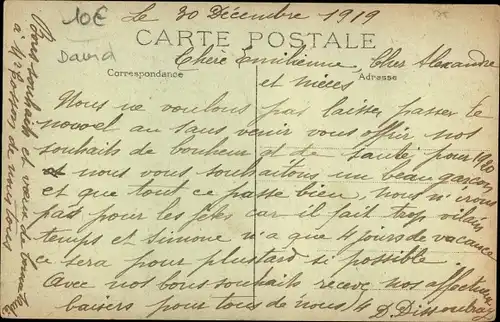 10€
David
Le 30 Décembre 1919
CARTE POSTALE
Correspondance
Adresse
Chère Emilienne, Cher Alexandre
et nièces
Nous ne voulons pas laisser passer le
nouvel an sans venir vous offrir nos
souhaits de bonheur et de santé pour 1920
et nous vous souhaitons un beau garçon
et que tout ce passe bien, nous n'irons
pas pour les fêtes car il fait trop vilain
temps et Simone n'a que 4 jours de vacance
ce sera pour plustard si possible.
Avec nos bons souhaits recevez nos affectueux
baisers pour tous de nous 4
Bons souhaits et vœux de bonne santé
à Mr de nous tous